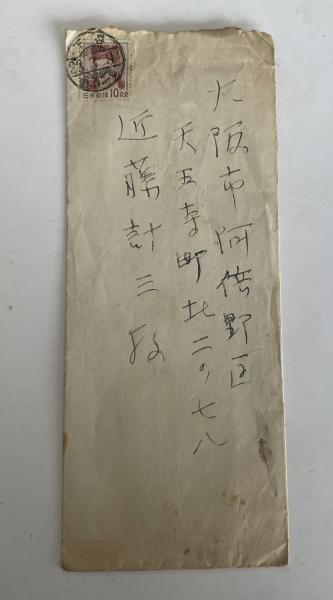 大阪市阿倍野区
天王寺町北二ノ七八
近藤計三殿
日本郵便 10.00